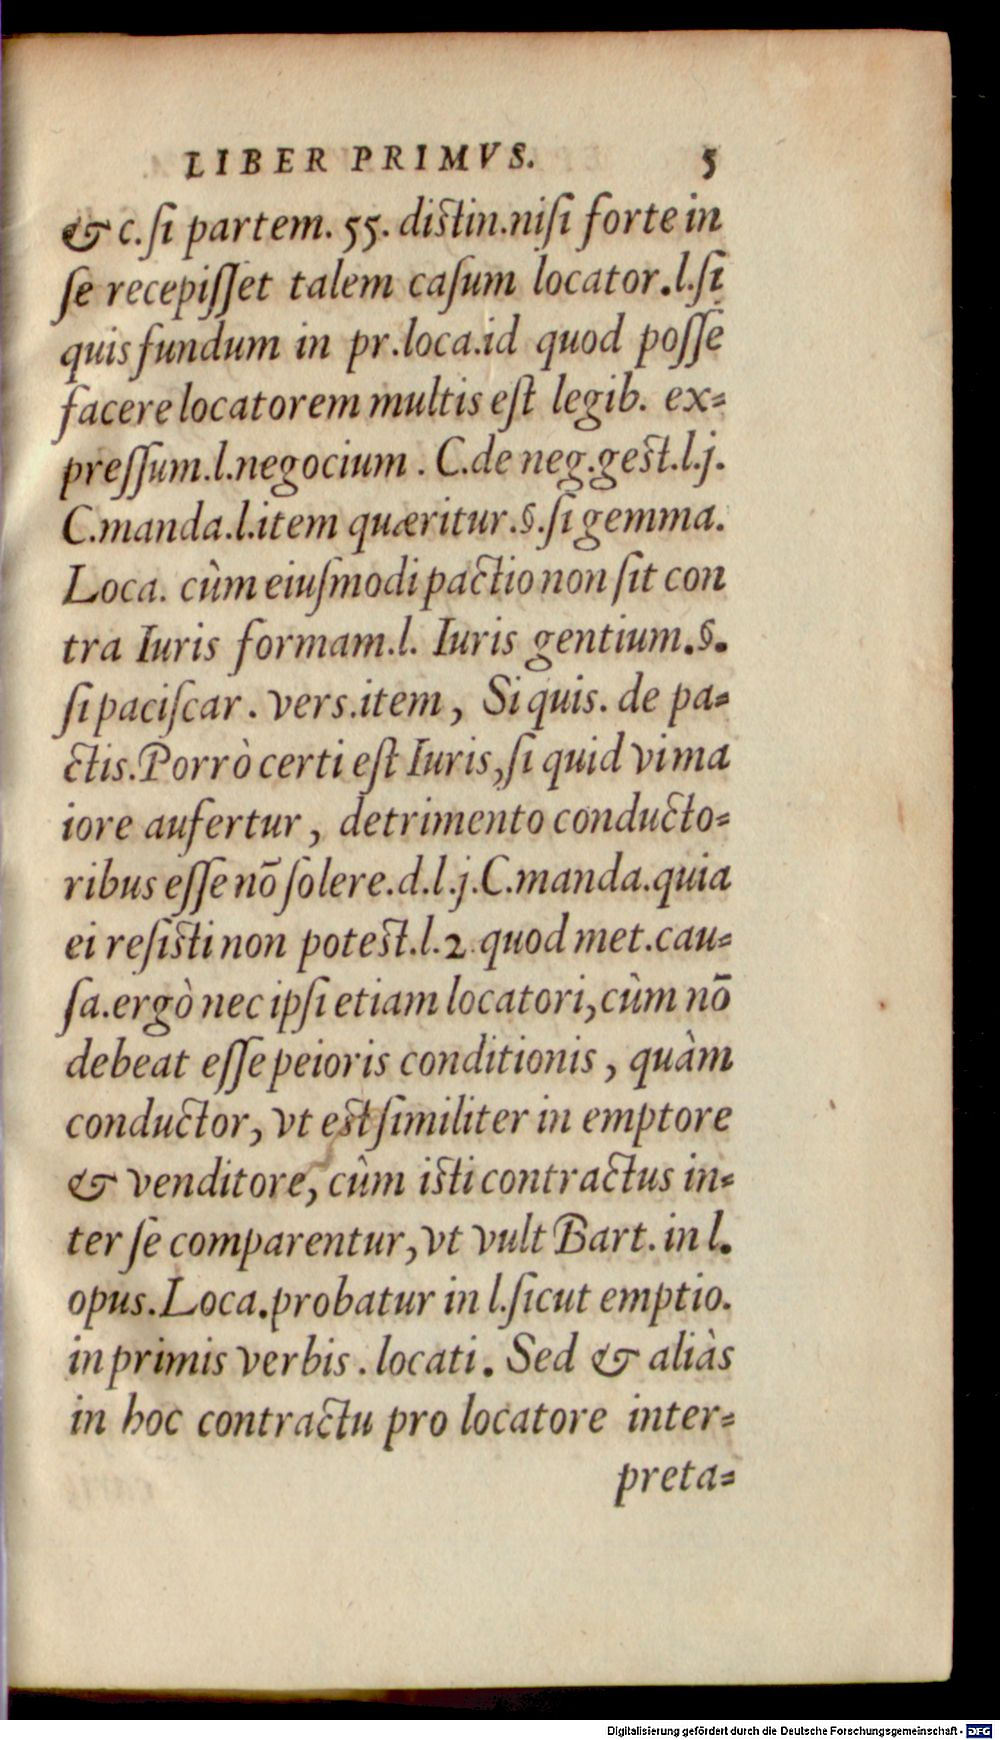 LIBER PRIMVS. 5
& c.ſi partem. 55. diſtin.niſi forte in
ſe recepiſſet talem caſum locator.l.ſi
quis fundum in pr.loca.id quod poſſe
facere locatorem multis eſt legib. ex=
preſſum.l.negocium. C.de neg.geſt.l.j.
C.manda.l.item quæritur.§.ſi gemma.
Loca. cùm eiuſmodi pactio non ſit con
tra Iuris formam.l. Iuris gentium.§.
ſi paciſcar. vers.item, Si quis. de pa=
ctis.Porrò certi eſt Iuris,ſi quid vi ma
iore aufertur, detrimento conducto=
ribus eſſe nō ſolere.d.l.j.C.manda.quia
ei reſiſti non poteſt.l.2.quod met.cau=
ſa.ergò nec ipſi etiam locatori,cùm nō
debeat eſſe peioris conditionis, quàm
conductor, vt eſt ſimiliter in emptore
& venditore, cùm iſti contractus in=
ter ſe comparentur,vt vult Bart. in l.
opus.Loca.probatur in l.ſicut emptio.
in primis verbis. locati. Sed & aliàs
in hoc contractu pro locatore inter=
preta=
Digitalisierung gefördert durch die Deutsche Forschungsgemeinschaft - DFG